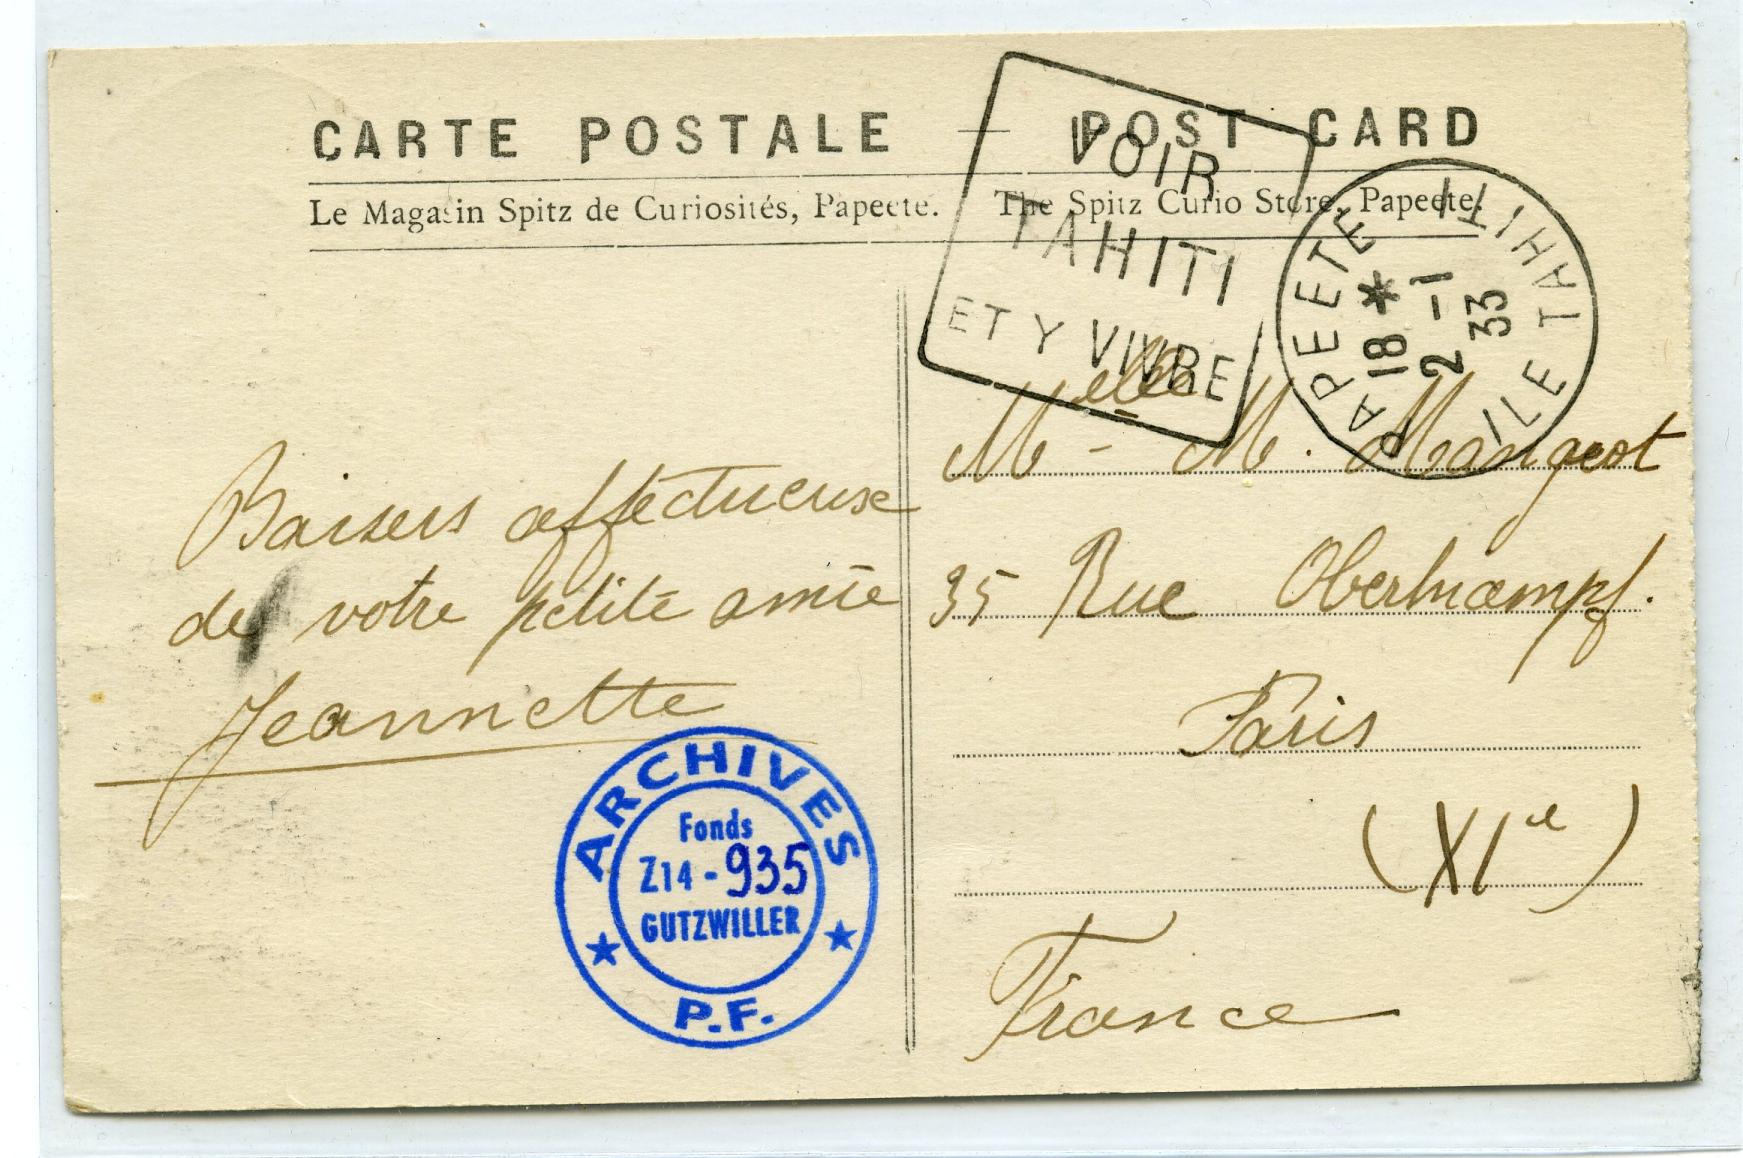 CARTE POSTALE — POST CARD
Le Magasin Spitz de Curiosités, Papeete. The Spitz Curio Store, Papeete.
VOIR
TAHITI
ET Y VIVRE
PAPEETE ILE TAHITI
18 *
2 -1
33
Baisers affectueuse
de votre petite amie
Jeannette
Melle - M. Mangeot
35 Rue Oberkampf.
Paris
(XIe)
France
ARCHIVES
Fonds
Z14-935
GUTZWILLER
★ ★
P.F.